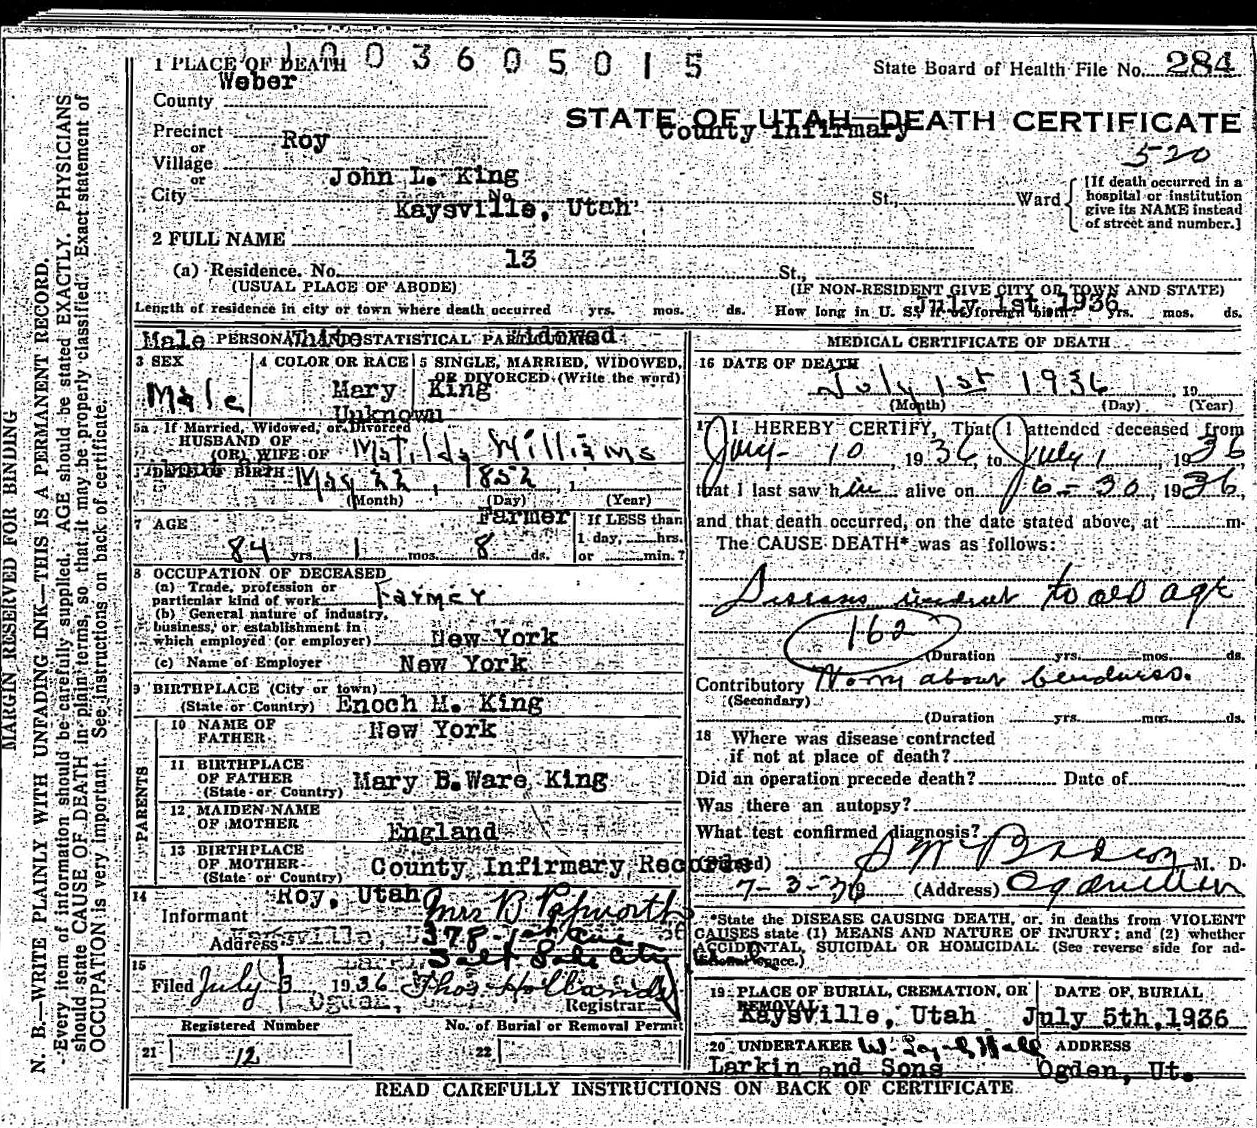 1003605015
1 PLACE OF DEATH
State Board of Health File No. 284
Weber
County
STATE OF UTAH—DEATH CERTIFICATE
County Infirmary
Precinct
or
Roy
520
Village
or
John L. King
City
No.
St., Ward
Kaysville, Utah
[If death occurred in a
hospital or institution
give its NAME instead
of street and number.]
2 FULL NAME
13
(a) Residence. No. St.,
(USUAL PLACE OF ABODE)
(IF NON-RESIDENT GIVE CITY OR TOWN AND STATE)
July 1st 1936
Length of residence in city or town where death occurred yrs. mos. ds. How long in U. S. if of foreign birth? yrs. mos. ds.
Male White Widowed
PERSONAL AND STATISTICAL PARTICULARS
3 SEX
4 COLOR OR RACE
5 SINGLE, MARRIED, WIDOWED,
OR DIVORCED (Write the word)
Male
Mary King
Unknown
5a If Married, Widowed, or Divorced
HUSBAND OF
(OR) WIFE OF
Matilda Williams
DATE OF BIRTH
May 22, 1852
(Month) (Day) (Year)
7 AGE
Farmer
If LESS than
1 day, hrs.
84 yrs. 1 mos. 8 ds.
or min.?
8 OCCUPATION OF DECEASED
(a) Trade, profession or
particular kind of work Farmer
(b) General nature of industry,
business, or establishment in
which employed (or employer)
New York
(c) Name of Employer
New York
9 BIRTHPLACE (City or town)
(State or Country)
Enoch M. King
PARENTS
10 NAME OF
FATHER
New York
11 BIRTHPLACE
OF FATHER
(State or Country)
Mary B. Ware King
12 MAIDEN NAME
OF MOTHER
England
13 BIRTHPLACE
OF MOTHER
(State or Country)
County Infirmary Records
14
Roy, Utah
Informant Mrs B Papworth
Address
378-1st Ave
Salt Lake City Utah
15
Filed July 3 1936 Thos Holland
Ogden,
Registrar
Registered Number
No. of Burial or Removal Permit
21 12
22
MEDICAL CERTIFICATE OF DEATH
16 DATE OF DEATH
July 1st 1936, 19
(Month) (Day) (Year)
17 I HEREBY CERTIFY, That I attended deceased from
July 10, 1936, to July 1, 1936,
that I last saw him alive on 6-30, 1936,
and that death occurred, on the date stated above, at m.
The CAUSE DEATH* was as follows:
Diseases incident to old age
162
(Duration yrs. mos. ds.
Contributory Worry about
(Secondary)
(Duration yrs. mos. ds.
18 Where was disease contracted
if not at place of death?
Did an operation precede death? Date of
Was there an autopsy?
What test confirmed diagnosis?
(Signed) M. D.
7-3-36 (Address) Ogden Utah
*State the DISEASE CAUSING DEATH, or, in deaths from VIOLENT
CAUSES state (1) MEANS AND NATURE OF INJURY; and (2) whether
ACCIDENTAL, SUICIDAL OR HOMICIDAL. (See reverse side for ad-
ditional space.)
19 PLACE OF BURIAL, CREMATION, OR
REMOVAL
DATE OF BURIAL
Kaysville, Utah
July 5th, 1936
20 UNDERTAKER
ADDRESS
Larkin and Sons
Ogden, Ut.
READ CAREFULLY INSTRUCTIONS ON BACK OF CERTIFICATE
MARGIN RESERVED FOR BINDING
N. B.—WRITE PLAINLY WITH UNFADING INK—THIS IS A PERMANENT RECORD.
Every item of information should be carefully supplied. AGE should be stated EXACTLY. PHYSICIANS
should state CAUSE OF DEATH in plain terms, so that it may be properly classified. Exact statement of
OCCUPATION is very important. See instructions on back of certificate.